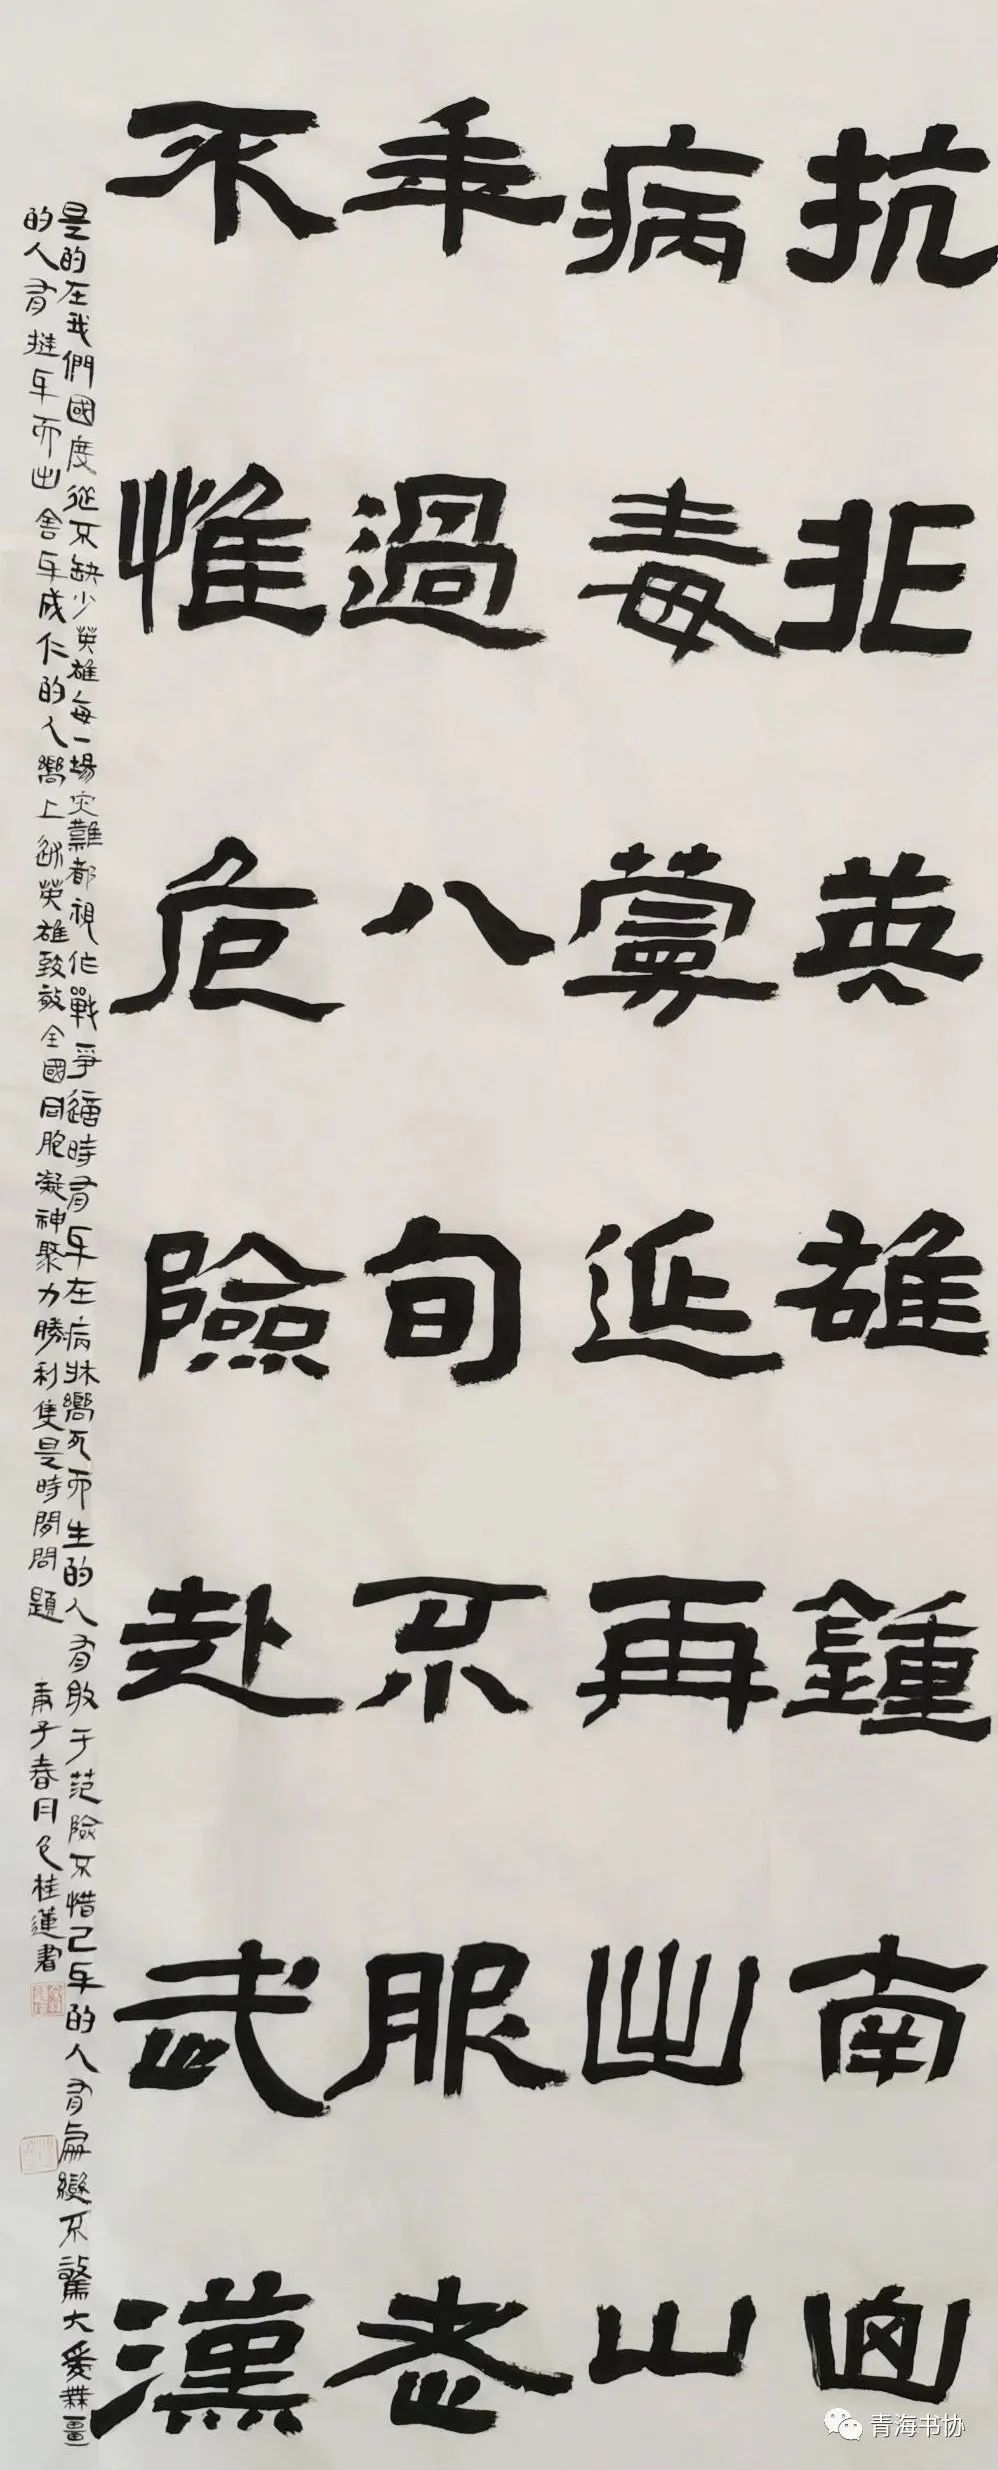 抗非英雄鍾南山
病毒蔓延再出山
年過八旬不服老
不惟危險赴武漢
是的在我們國度從不缺少英雄每一場灾難都視作戰爭適時有身在病牀嚮死而生的人有敢于范險不惜己身的人有處變不驚大愛無疆
的人有挺身而出舍身成仁的人嚮上述英雄致敬全國同胞凝神聚力勝利隻是時間問題 庚子春月桂蓮書
青海书协